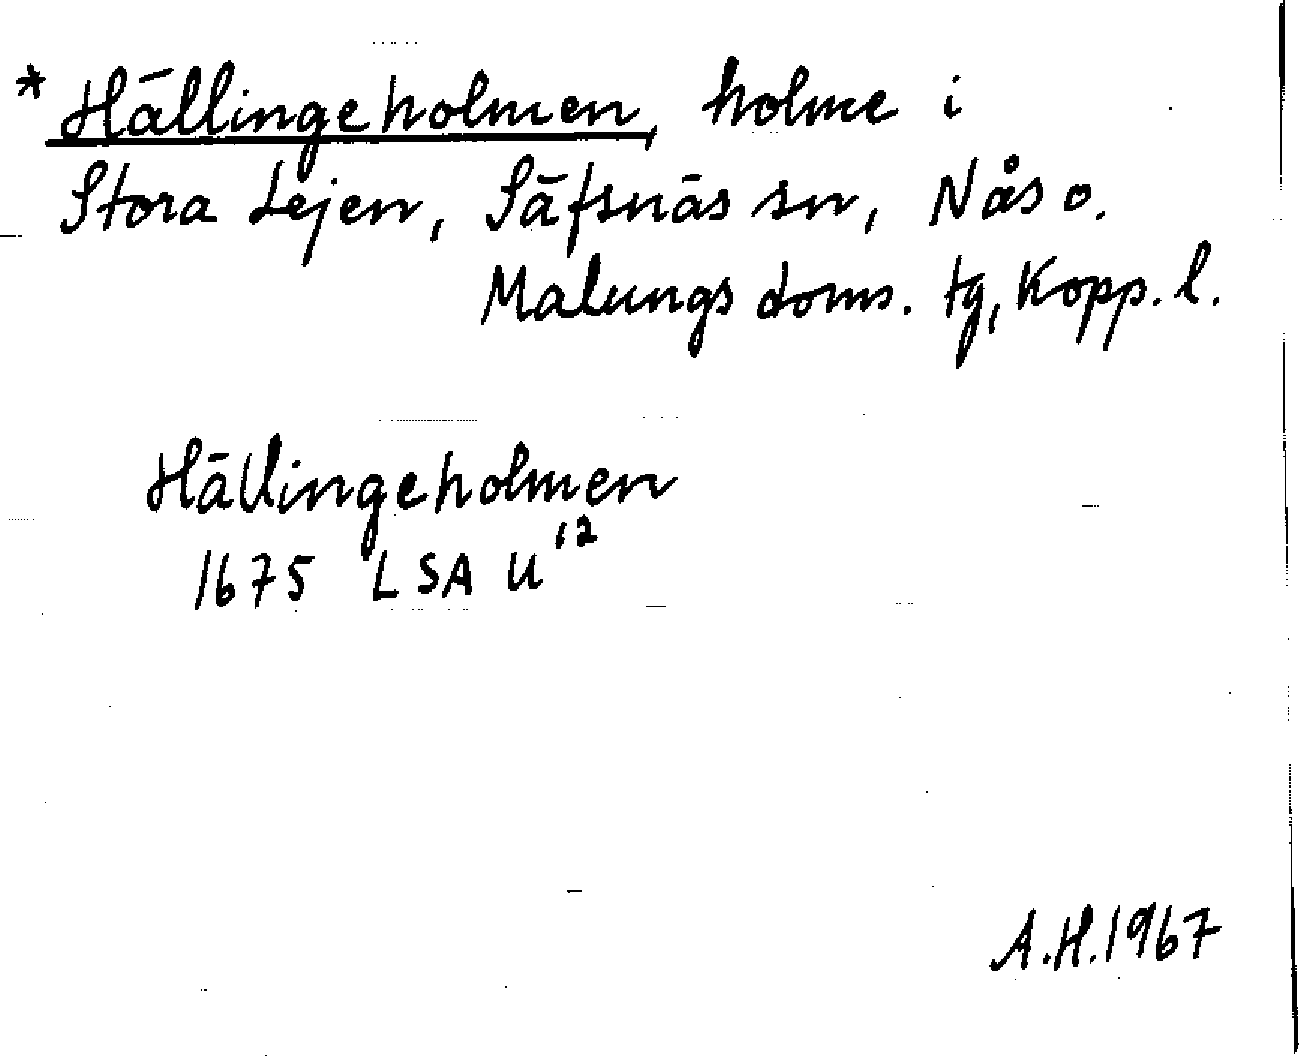 * Hällingeholmen, holme i
Stora Lejen, Säfsnäs sn, Nås o.
Malungs doms. tg, Kopp. l.
Hällingeholmen
1675 LSA U¹²
A.H. 1967